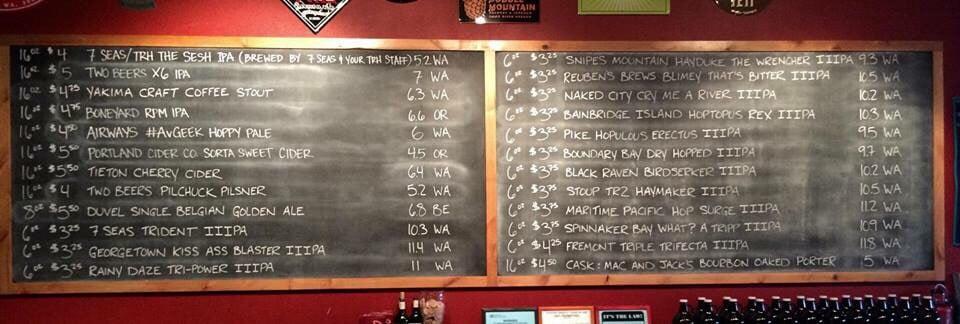 WA, ZERO
DOUBLE
MOUNTAIN
YETI
16oz $4 7 SEAS/TRH THE SESH IPA (BREWED BY 7 SEAS & YOUR TRH STAFF) 5.2 WA
16oz $5 TWO BEERS X6 IPA 7 WA
16oz $4.75 YAKIMA CRAFT COFFEE STOUT 6.3 WA
16oz $4.75 BONEYARD RPM IPA 6.6 OR
16oz $4.50 AIRWAYS #AVGEEK HOPPY PALE 6 WA
16oz $5.50 PORTLAND CIDER CO. SORTA SWEET CIDER 4.5 OR
16oz $5.50 TIETON CHERRY CIDER 6.4 WA
16oz $4 TWO BEERS PILCHUCK PILSNER 5.2 WA
8oz $5.50 DUVEL SINGLE BELGIAN GOLDEN ALE 6.8 BE
6oz $3.75 7 SEAS TRIDENT IIIPA 10.3 WA
6oz $3.25 GEORGETOWN KISS ASS BLASTER IIIPA 11.4 WA
6oz $3.75 RAINY DAZE TRI-POWER IIIPA 11 WA
6oz $3.25 SNIPES MOUNTAIN HAYDUKE THE WRENCHER IIIPA 9.3 WA
6oz $3.25 REUBEN'S BREWS BLIMEY THAT'S BITTER IIIPA 10.5 WA
6oz $3.25 NAKED CITY CRY ME A RIVER IIIPA 10.2 WA
6oz $3.75 BAINBRIDGE ISLAND HOPTOPUS REX IIIPA 10.3 WA
6oz $3.75 PIKE HOPULOUS ERECTUS IIIPA 9.5 WA
6oz $3.25 BOUNDARY BAY DRY HOPPED IIIPA 9.7 WA
6oz $3.75 BLACK RAVEN BIRDSERKER IIIPA 10.2 WA
6oz $3.75 STOUP TR2 HAYMAKER IIIPA 10.5 WA
6oz $3.75 MARITIME PACIFIC HOP SURGE IIIPA 11.2 WA
6oz $3.75 SPINNAKER BAY WHAT? A TRIPP IIIPA 10.9 WA
6oz $4.25 FREMONT TRIPLE TRIFECTA IIIPA 11.8 WA
16oz $4.50 CASK: MAC AND JACK'S BOURBON OAKED PORTER 5 WA
IT'S THE LAW!